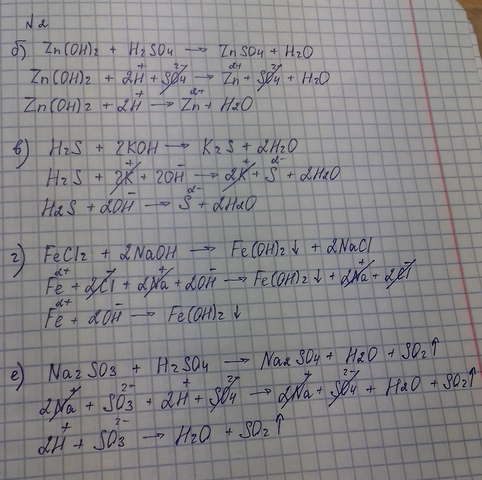 N2
б) Zn(OH)₂ + H₂SO₄ → ZnSO₄ + H₂O
Zn(OH)₂ + 2H⁺ + SO₄²⁻ → Zn²⁺ + SO₄²⁻ + H₂O
Zn(OH)₂ + 2H⁺ → Zn²⁺ + H₂O
в) H₂S + 2KOH → K₂S + 2H₂O
H₂S + 2K⁺ + 2OH⁻ → 2K⁺ + S²⁻ + 2H₂O
H₂S + 2OH⁻ → S²⁻ + 2H₂O
г) FeCl₂ + 2NaOH → Fe(OH)₂↓ + 2NaCl
Fe²⁺ + 2Cl⁻ + 2Na⁺ + 2OH⁻ → Fe(OH)₂↓ + 2Na⁺ + 2Cl⁻
Fe²⁺ + 2OH⁻ → Fe(OH)₂↓
е) Na₂SO₃ + H₂SO₄ → Na₂SO₄ + H₂O + SO₂↑
2Na⁺ + SO₃²⁻ + 2H⁺ + SO₄²⁻ → 2Na⁺ + SO₄²⁻ + H₂O + SO₂↑
2H⁺ + SO₃²⁻ → H₂O + SO₂↑